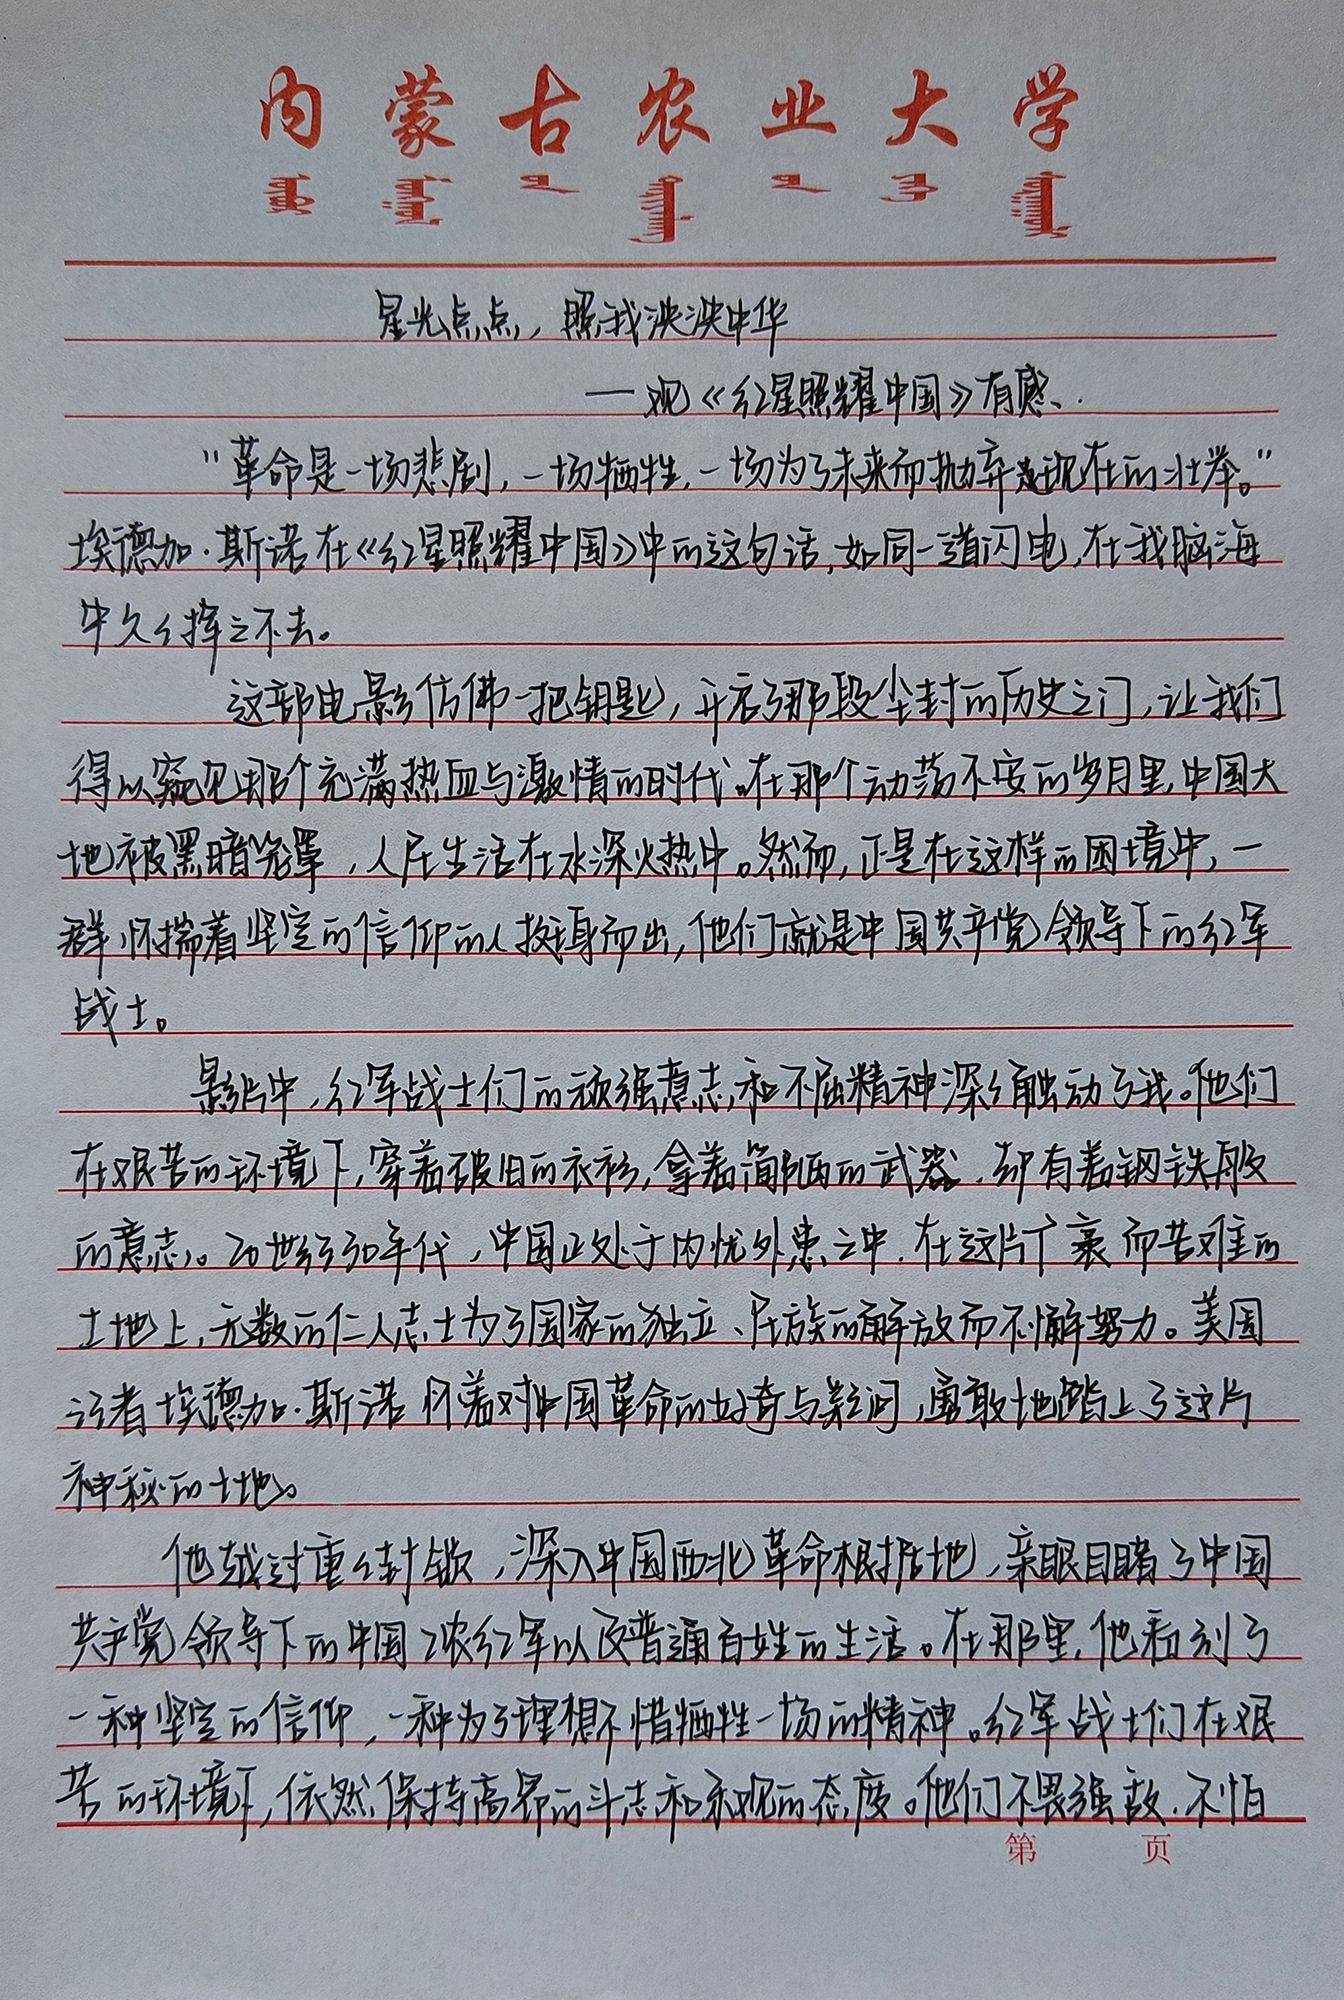 内蒙古农业大学
星光点点，照我泱泱中华
——观《红星照耀中国》有感、
“革命是一场悲剧，一场牺牲，一场为了未来而抛弃现在的壮举。”
埃德加·斯诺在《红星照耀中国》中的这句话，如同一道闪电，在我脑海
中久久挥之不去。
这部电影仿佛一把钥匙，开启了那段尘封的历史之门，让我们
得以窥见那个充满热血与激情的时代。在那个动荡不安的岁月里，中国大
地被黑暗笼罩，人民生活在水深火热中。然而，正是在这样的困境中，一
群怀揣着坚定的信仰的人挺身而出，他们就是中国共产党领导下的红军
战士。
影片中，红军战士们的顽强意志和不屈精神深深触动了我。他们
在艰苦的环境下，穿着破旧的衣衫，拿着简陋的武器，却有着钢铁般
的意志。20世纪30年代，中国正处于内忧外患之中，在这片广袤而苦难的
土地上，无数的仁人志士为了国家的独立、民族的解放而不懈努力。美国
记者埃德加·斯诺怀着对中国革命的好奇与疑问，勇敢地踏上了这片
神秘的土地。
他越过重重封锁，深入中国西北革命根据地，亲眼目睹了中国
共产党领导下的中国工农红军以及普通百姓的生活。在那里，他看到了
一种坚定的信仰，一种为了理想不惜牺牲一场的精神。红军战士们在艰
苦的环境下，依然保持高昂的斗志和乐观的态度。他们不畏强敌，不怕
第 页